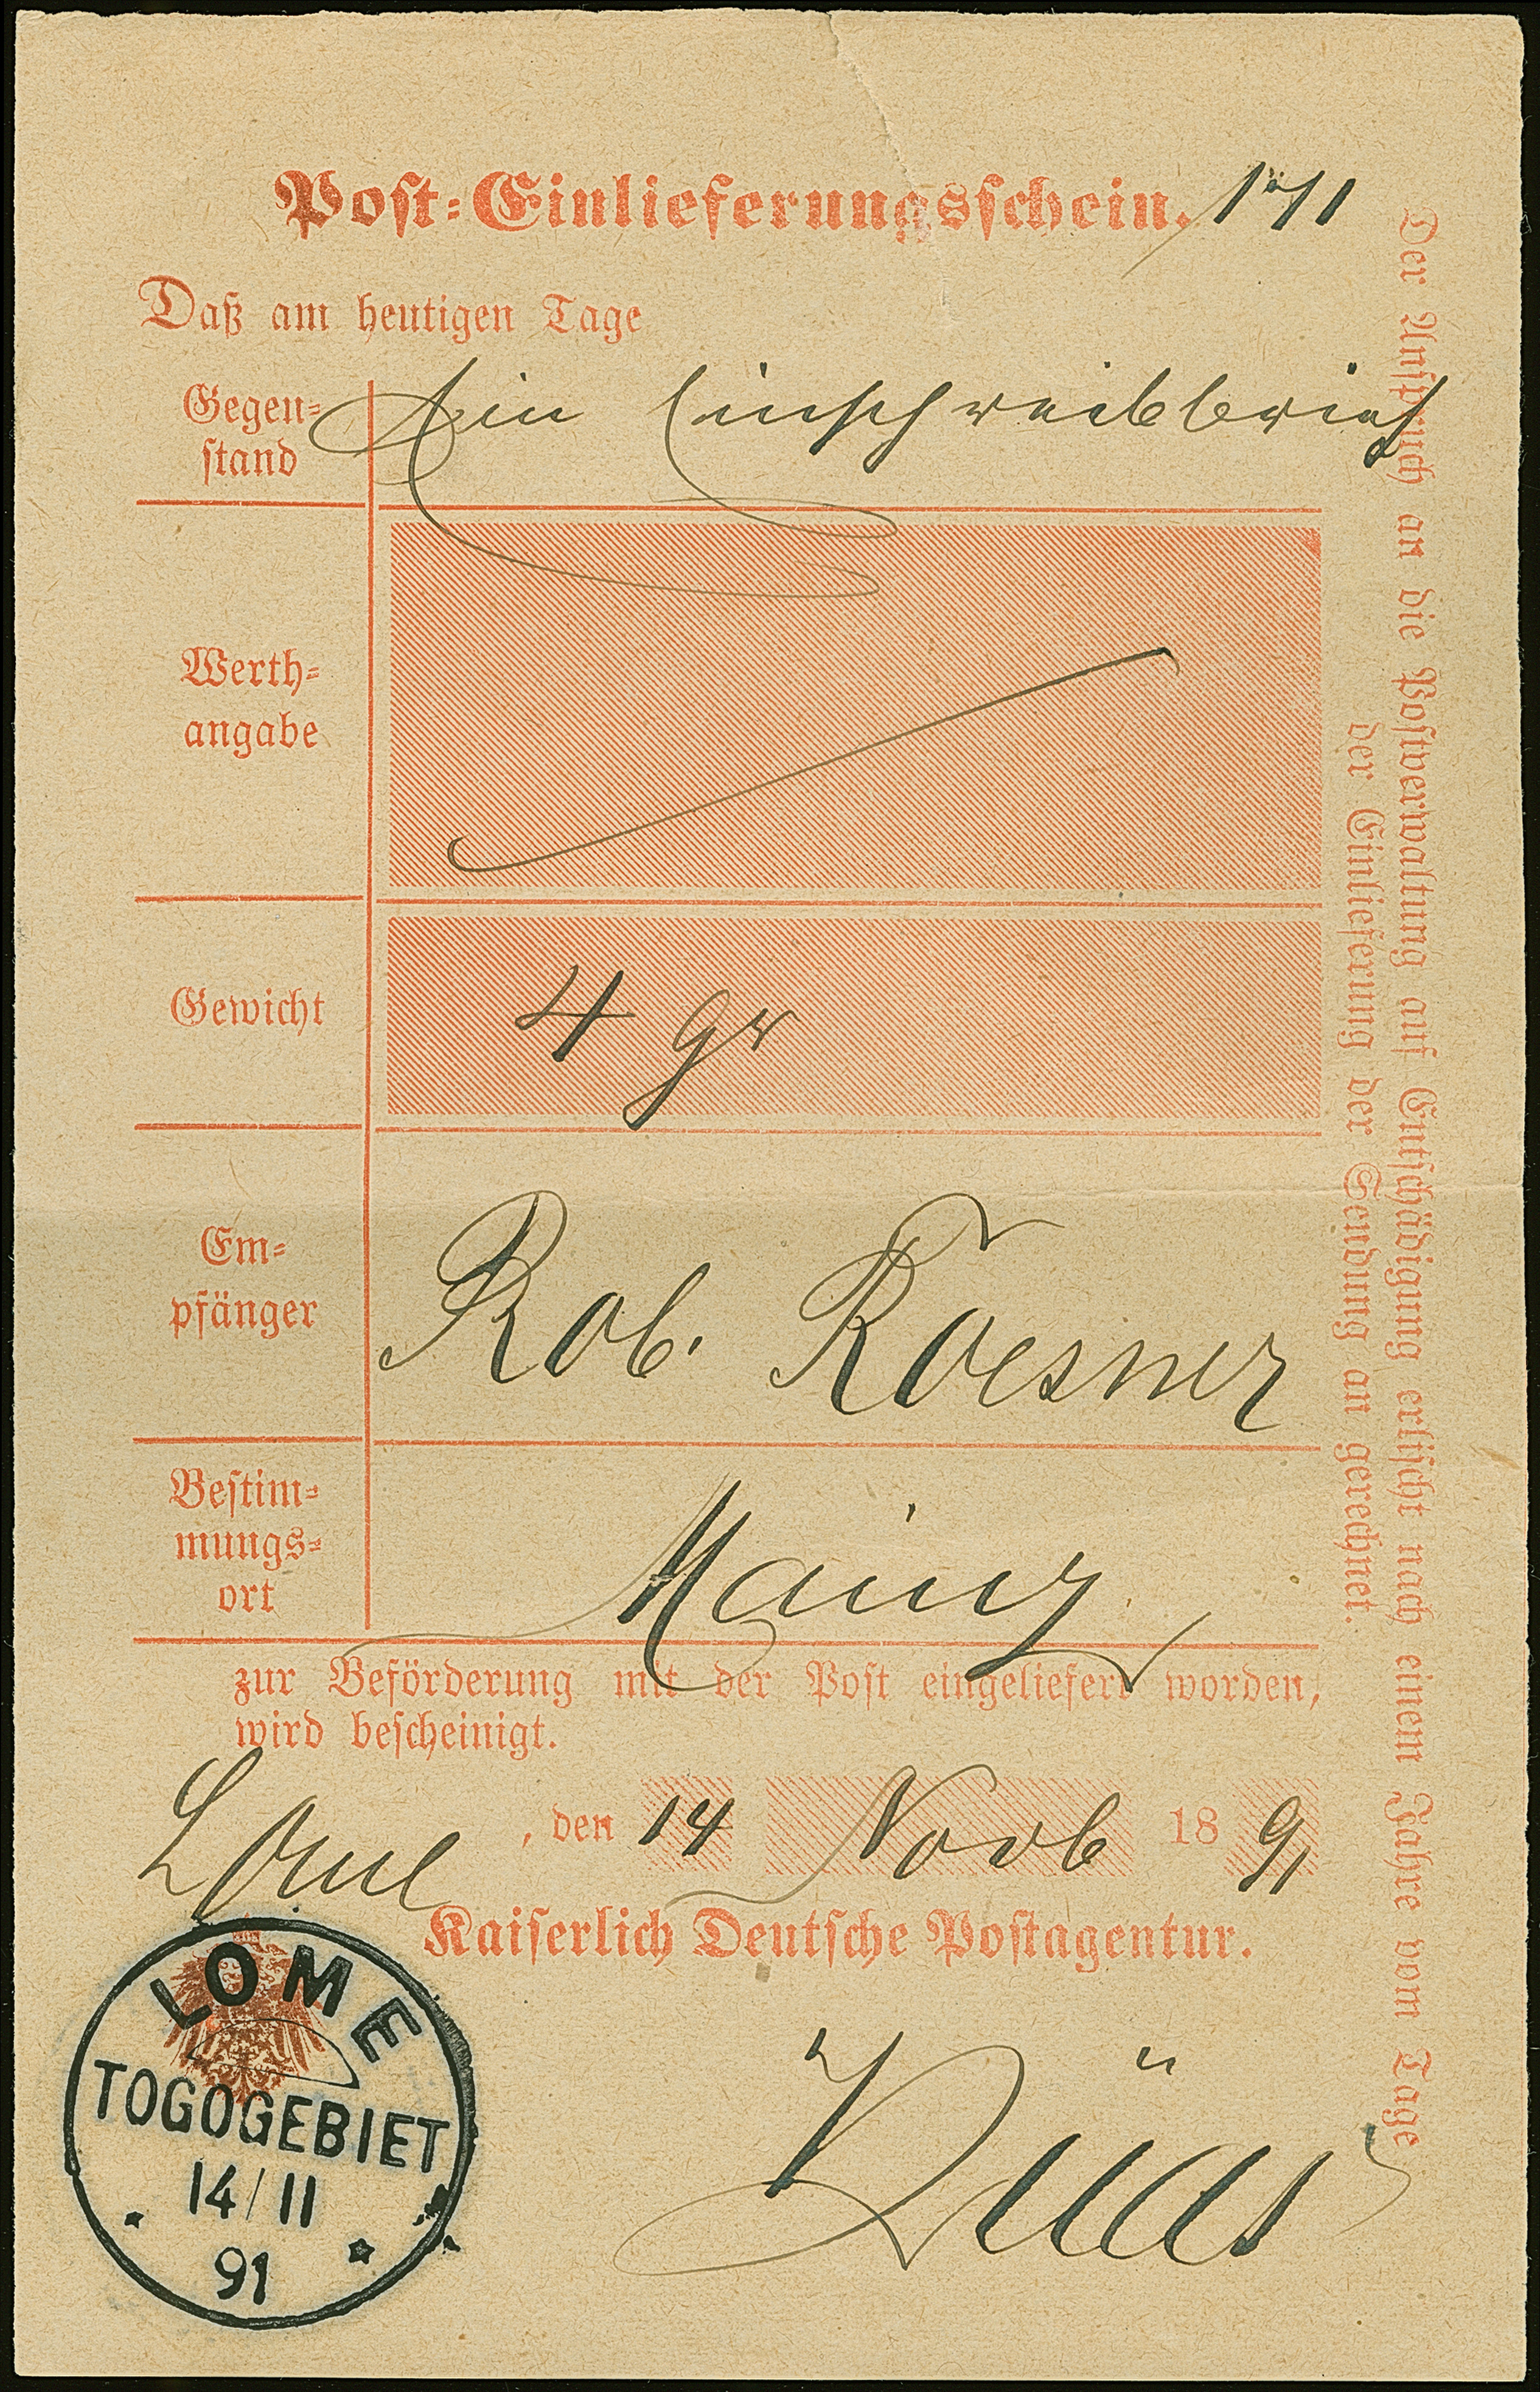 Post-Einlieferungsschein.
Daß am heutigen Tage
Gegen-
stand
Ein Einschreibbrief
Werth-
angabe
Gewicht
4 gr
Em-
pfänger
Rob. Roesner
Bestim-
mungs-
ort
Mainz
zur Beförderung mit der Post eingeliefert worden,
wird bescheinigt.
Lome, den 14 Novb 1891
Kaiserlich Deutsche Postagentur.
LOME
TOGOGEBIET
14/11
91
Der Anspruch an die Postverwaltung auf Entschädigung erlischt nach einem Jahre vom Tage
der Einlieferung der Sendung an gerechnet.